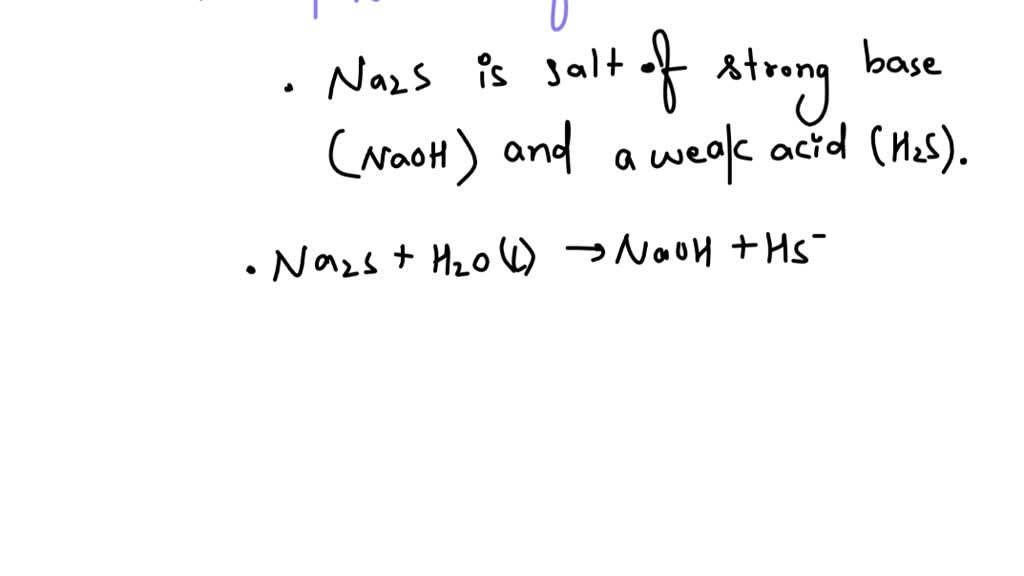 . Na2S is salt of strong base
(NaOH) and a weak acid (H2S).
. Na2S + H2O(l) → NaOH + HS⁻